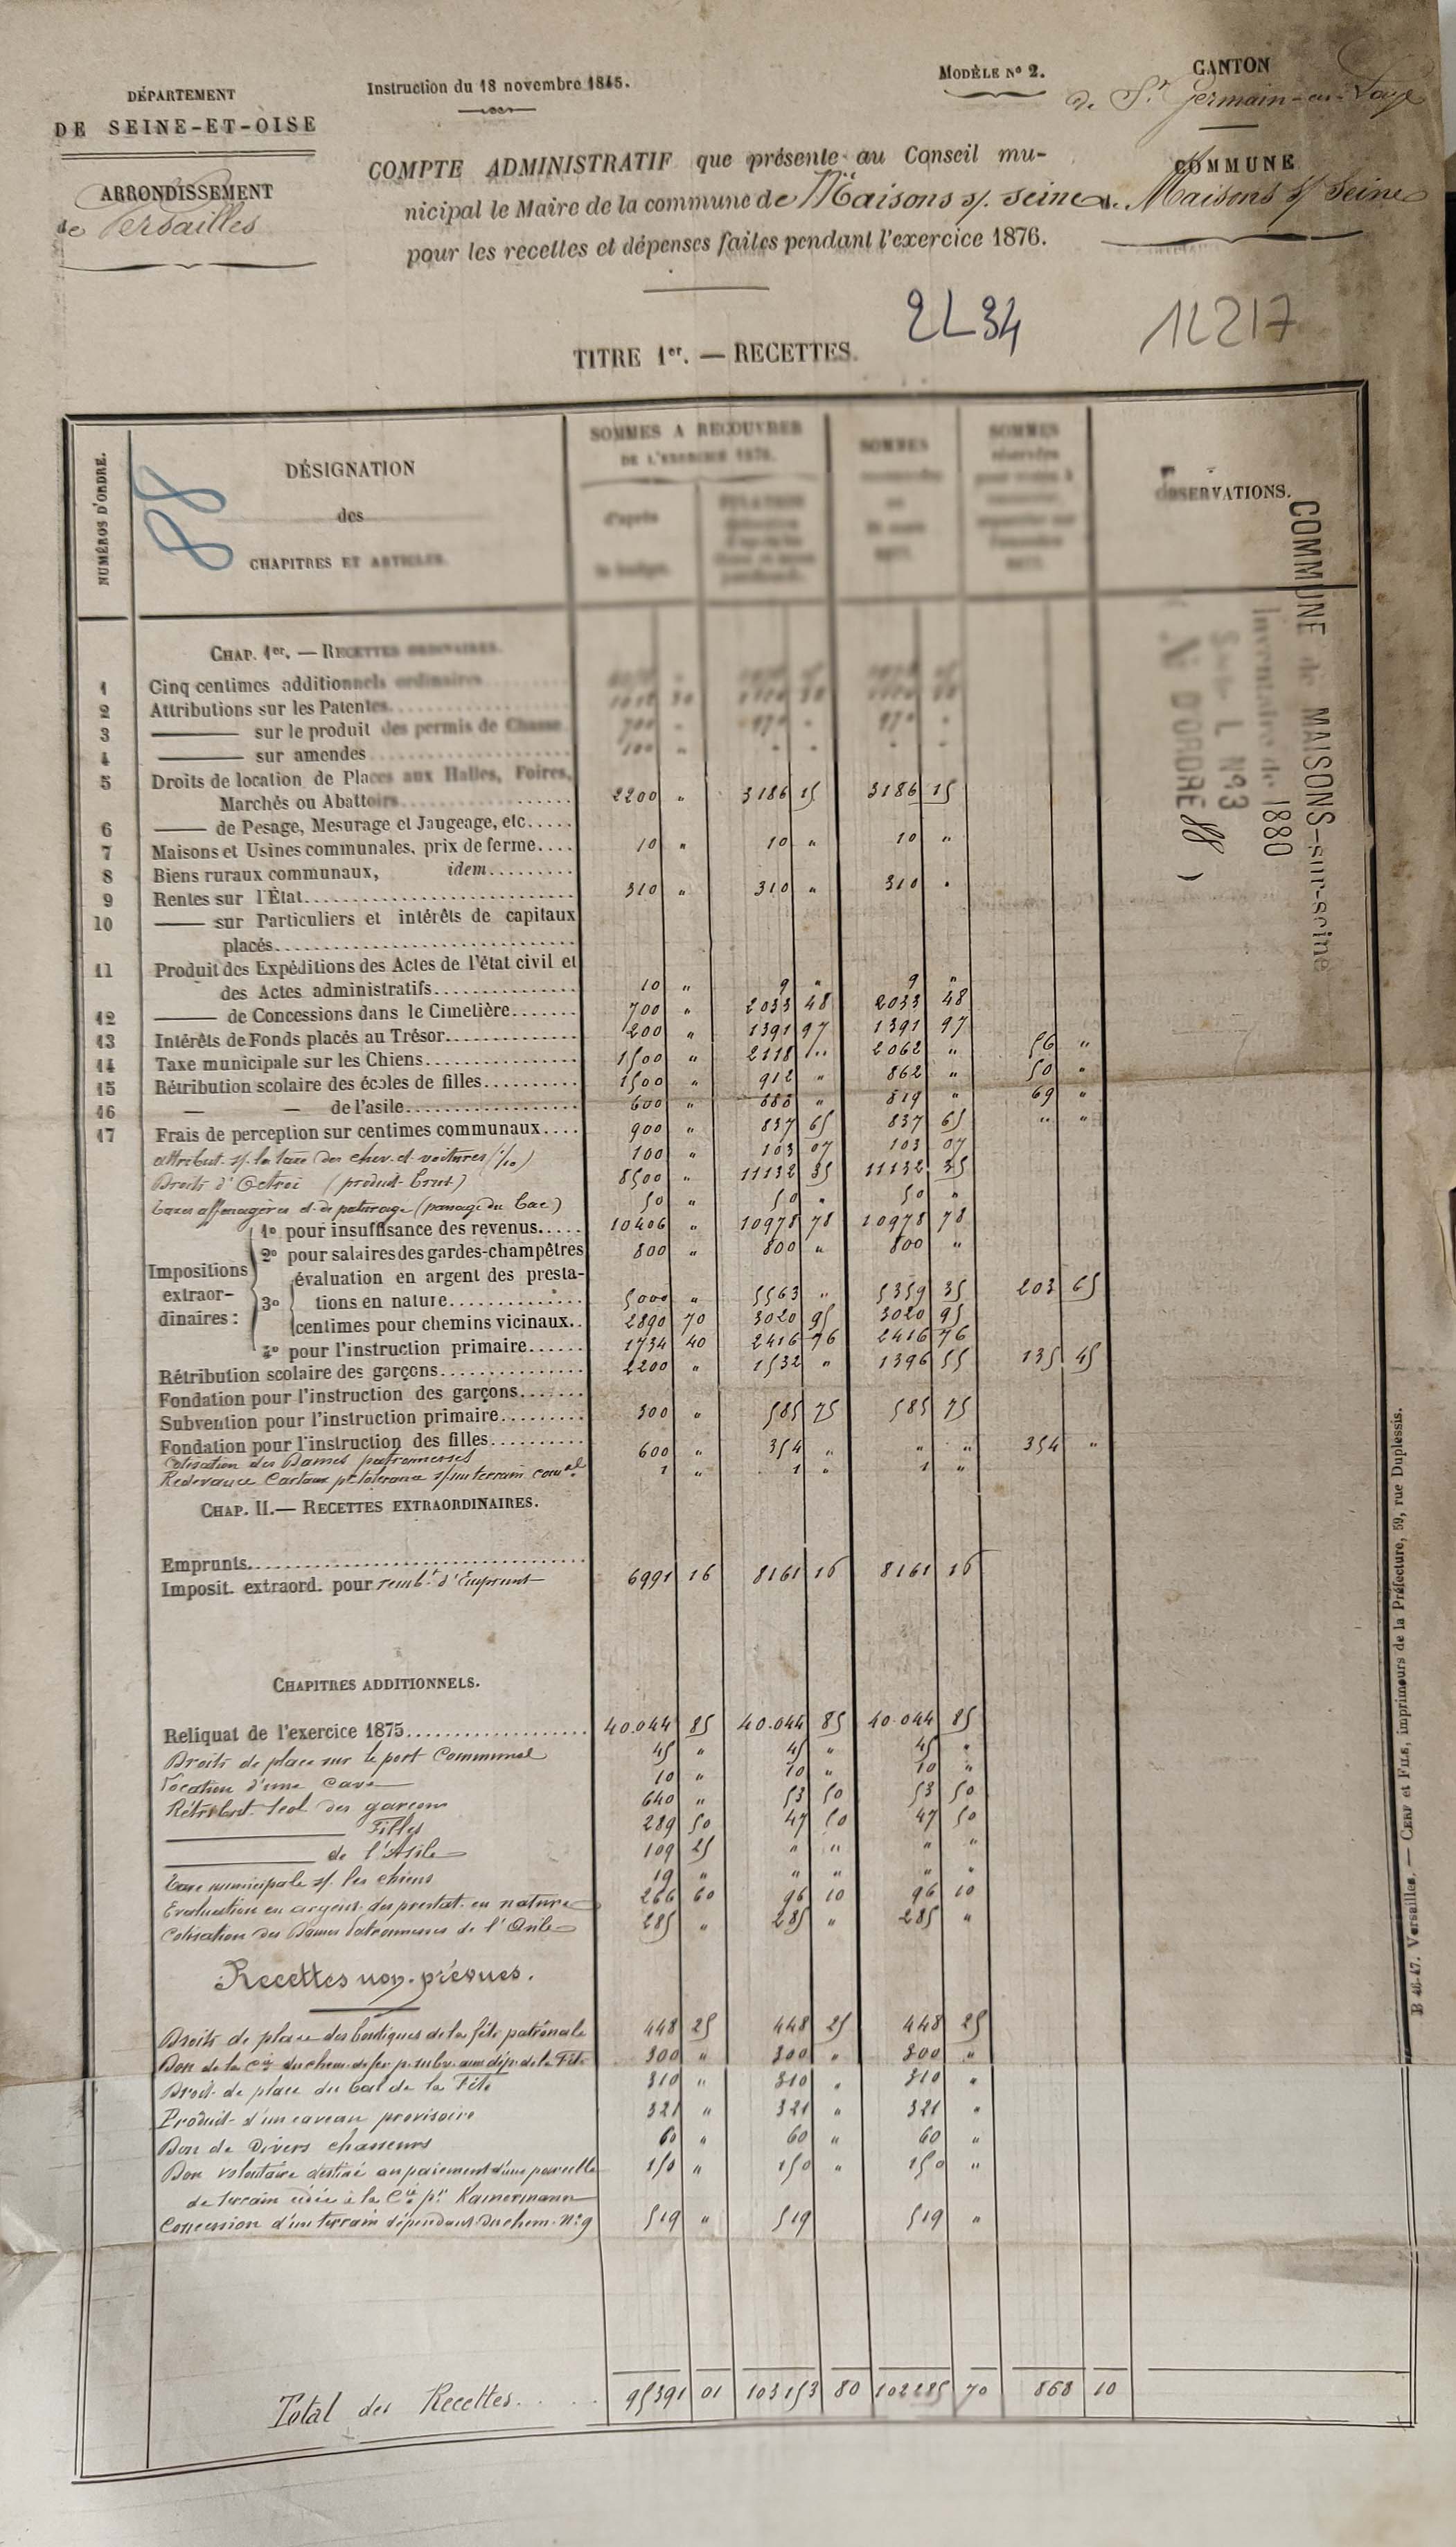 DÉPARTEMENT
DE SEINE-ET-OISE
ARRONDISSEMENT
de Versailles
Instruction du 18 novembre 1845.
MODÈLE No 2.
CANTON
de St Germain-en-Laye
COMMUNE
de Maisons s/ Seine
COMPTE ADMINISTRATIF que présente au Conseil mu-
nicipal le Maire de la commune de Maisons s/. Seine
pour les recettes et dépenses faites pendant l'exercice 1876.
2L34
1L217
TITRE 1er. — RECETTES.
NUMÉROS D'ORDRE.
88
DÉSIGNATION
des
CHAPITRES ET ARTICLES.
SOMMES A RECOUVRER
DE L'EXERCICE 1876.
d'après
le budget.
SOMMES
SOMMES
OBSERVATIONS.
COMMUNE de MAISONS-sur-seine
Inventaire de 1880
Série L No 3
No D'ORDRE 88
CHAP. 1er. — RECETTES ORDINAIRES.
1 Cinq centimes additionnels ordinaires
2 Attributions sur les Patentes
3 — sur le produit des permis de Chasse 700 " 970 " 970 "
4 — sur amendes 100 " " " " "
5 Droits de location de Places aux Halles, Foires,
Marchés ou Abattoirs 2200 " 3186 15 3186 15
6 — de Pesage, Mesurage et Jaugeage, etc.
7 Maisons et Usines communales, prix de ferme 10 " 10 " 10 "
8 Biens ruraux communaux, idem
9 Rentes sur l'État 310 " 310 " 310 "
10 — sur Particuliers et intérêts de capitaux
placés
11 Produit des Expéditions des Actes de l'état civil et
des Actes administratifs 10 " 9 " 9 "
12 — de Concessions dans le Cimetière 700 " 2033 48 2033 48
13 Intérêts de Fonds placés au Trésor 200 " 1391 97 1391 97
14 Taxe municipale sur les Chiens 1500 " 2118 " 2062 " 56 "
15 Rétribution scolaire des écoles de filles 1500 " 912 " 862 " 50 "
16 — — de l'asile 600 " 888 " 819 " 69 "
17 Frais de perception sur centimes communaux 900 " 837 65 837 65 " "
attribut. s/. la taxe des chev. et voitures (1/20) 100 " 103 07 103 07
Droits d'Octroi (produit brut) 8500 " 11132 35 11132 35
taxes affouagères et de pâturage (panage du Bac) 50 " 50 " 50 "
Impositions extraor-dinaires :
1o pour insuffisance des revenus 10406 " 10978 78 10978 78
2o pour salaires des gardes-champêtres 800 " 800 " 800 "
3o évaluation en argent des presta-
tions en nature 5000 " 5563 " 5359 35 203 65
centimes pour chemins vicinaux 2890 70 3020 95 3020 95
4o pour l'instruction primaire 1734 40 2416 76 2416 76
Rétribution scolaire des garçons 2200 " 1532 " 1396 55 135 45
Fondation pour l'instruction des garçons
Subvention pour l'instruction primaire 300 " 585 75 585 75
Fondation pour l'instruction des filles
Cotisation des Dames patronnesses 600 " 354 " " " 354 "
Redevance pr tolérance s/ un terrain comal 1 " 1 " 1 "
CHAP. II. — RECETTES EXTRAORDINAIRES.
Emprunts
Imposit. extraord. pour remb.t d'Emprunt 6991 16 8161 16 8161 16
CHAPITRES ADDITIONNELS.
Reliquat de l'exercice 1875 40.044 85 40.044 85 40.044 85
Droits de place sur le port Communal 45 " 45 " 45 "
Location d'une cave 10 " 10 " 10 "
Rétribut. scol. des garçons 640 " 53 50 53 50
— Filles 289 50 47 50 47 50
— de l'Asile 109 25 " " " "
Taxe municipale s/. les chiens 19 " " " " "
Evaluation en argent des prestat. en nature 266 60 96 10 96 10
Cotisation des Dames Patronnesses de l'Asile 285 " 285 " 285 "
Recettes non-prévues.
Droits de place des boutiques de la fête patronale 448 25 448 25 448 25
Don de la Cie du chem. de fer p. subv. aux dép. de la Fête 300 " 300 " 300 "
Droit de place du bal de la Fête 310 " 310 " 310 "
Produit d'un caveau provisoire 321 " 321 " 321 "
Don de Divers chasseurs 60 " 60 " 60 "
Don volontaire destiné au paiement d'une parcelle 150 " 150 " 150 "
de terrain cédée à la Cne pr Kamermann
Concession d'un terrain dépendant du chem. No 9 519 " 519 519 "
Total des Recettes 95391 01 103153 80 102285 70 868 10
B 46-47. Versailles. — CERF et FILS, imprimeurs de la Préfecture, 59, rue Duplessis.